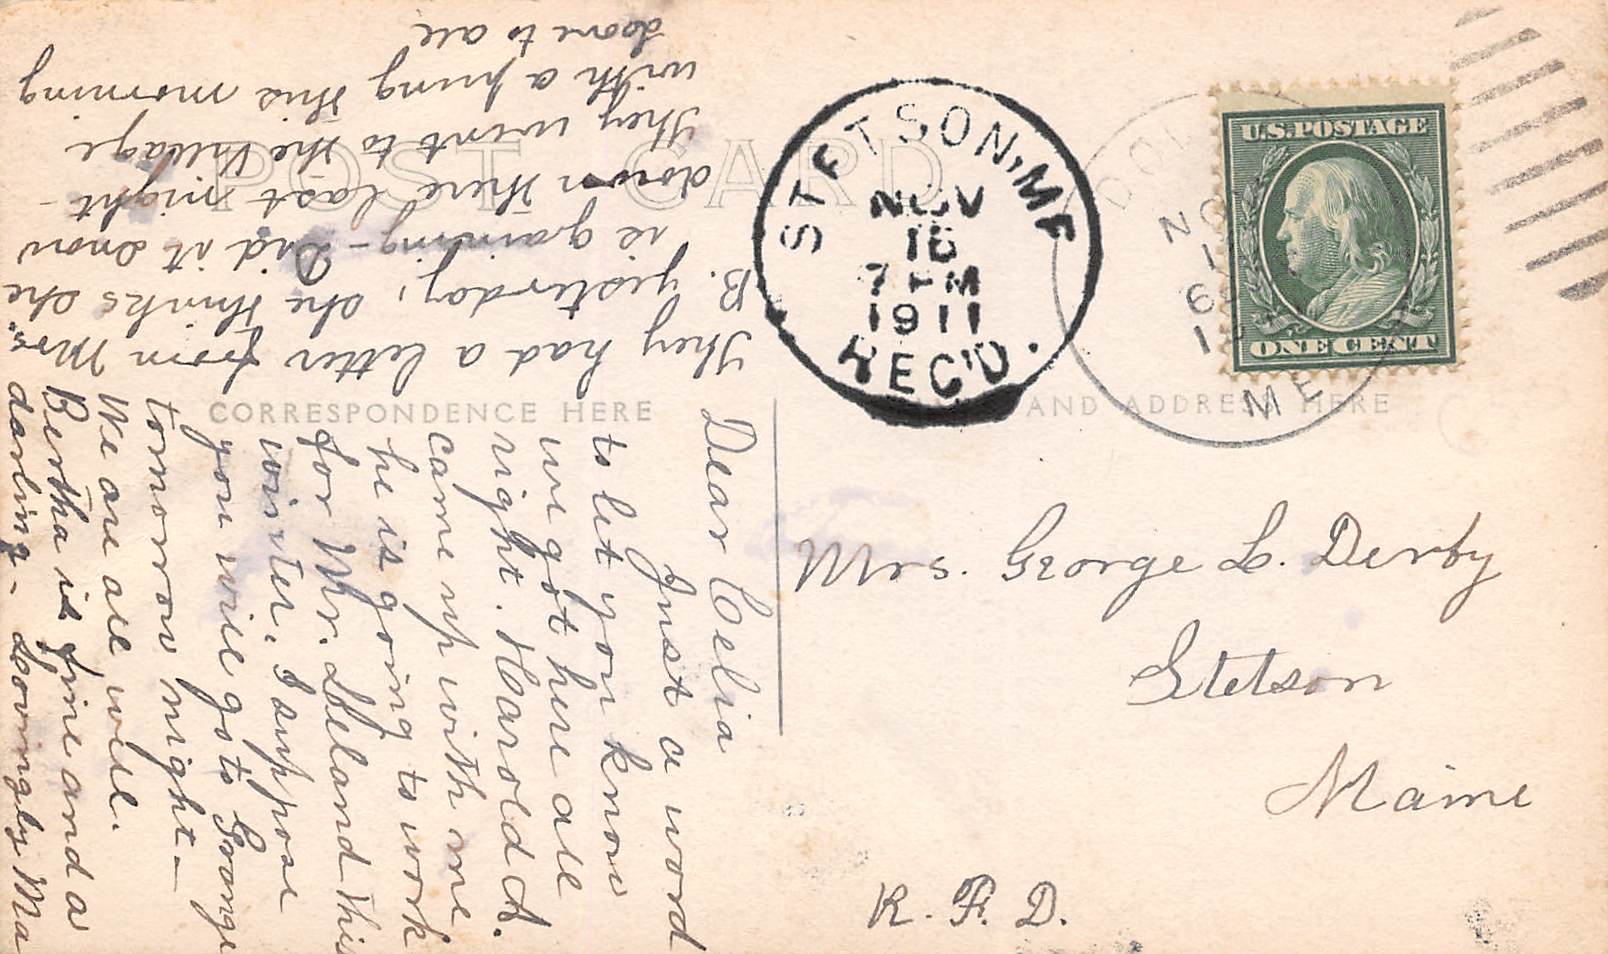 POST CARD
CORRESPONDENCE HERE
AND ADDRESS HERE
STETSON, ME
NOV
16
7 PM
1911
REC'D.
NO
ME
U.S. POSTAGE
ONE CENT
Mrs. George L. Derby
Stetson
Maine
R. F. D.
Dear Celia
Just a word
to let you know
we got here all
right. Harold A.
came up with me
he is going to work
for Mr. Leland this
winter. I suppose
you will go to Grange
tomorrow night —
We are all well.
Bertha is fine and a
darling - Lovingly Ma
They had a letter from Mrs.
B. yesterday, she thinks she
is gaining - Did it snow
down there last night -
They went to the Village
with a pung this morning
love to all